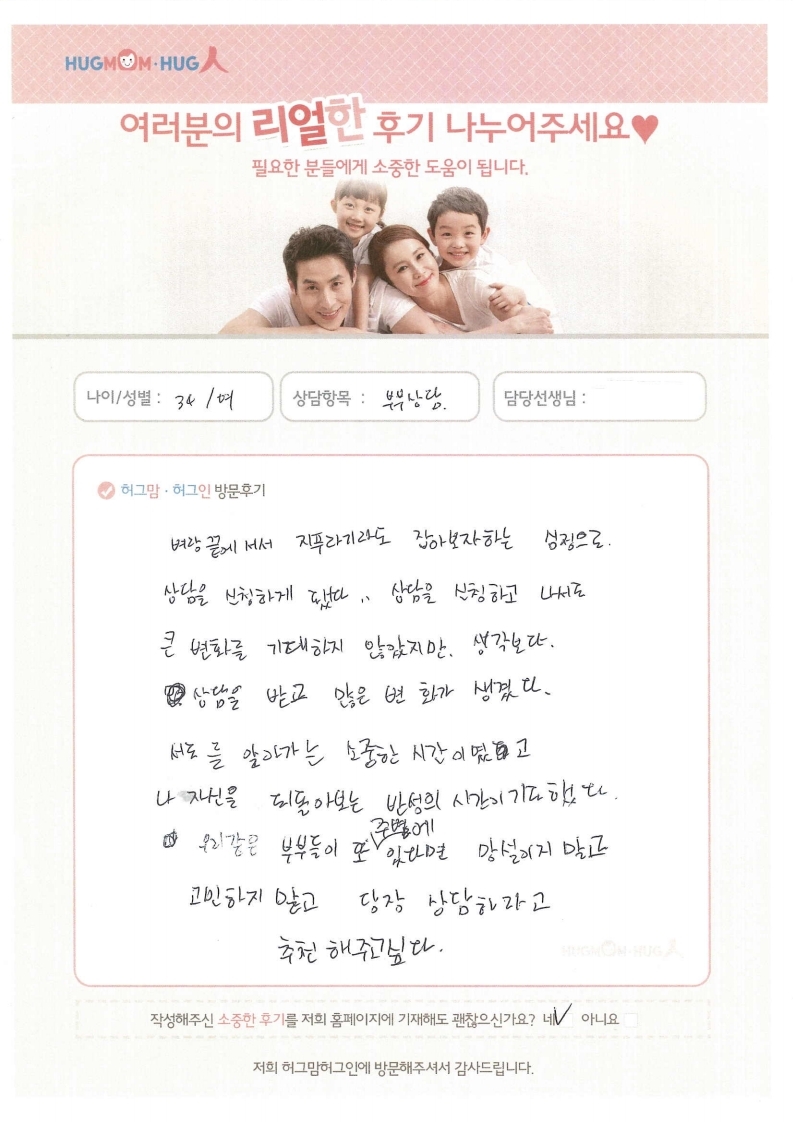 HUGMOM·HUG人
여러분의 리얼한 후기 나누어주세요♥
필요한 분들에게 소중한 도움이 됩니다.
나이/성별 : 34 / 여
상담항목 : 부부상담.
담당선생님 :
허그맘·허그인 방문후기
벼랑 끝에 서서 지푸라기라도 잡아보자하는 심정으로.
상담을 신청하게 됐다 .. 상담을 신청하고 나서도
큰 변화를 기대하지 않았지만, 생각보다.
상담을 받고 많은 변화가 생겼다.
서로를 알아가는 소중한 시간이였고
나 자신을 되돌아보는 반성의 시간이기도했다.
우리같은 부부들이 또 주변에 있다면 망설이지 말고
고민하지 말고 당장 상담하라고
추천 해주고싶다.
HUGMOM·HUG人
작성해주신 소중한 후기를 저희 홈페이지에 기재해도 괜찮으신가요? 네 ✓ 아니요
저희 허그맘허그인에 방문해주셔서 감사드립니다.